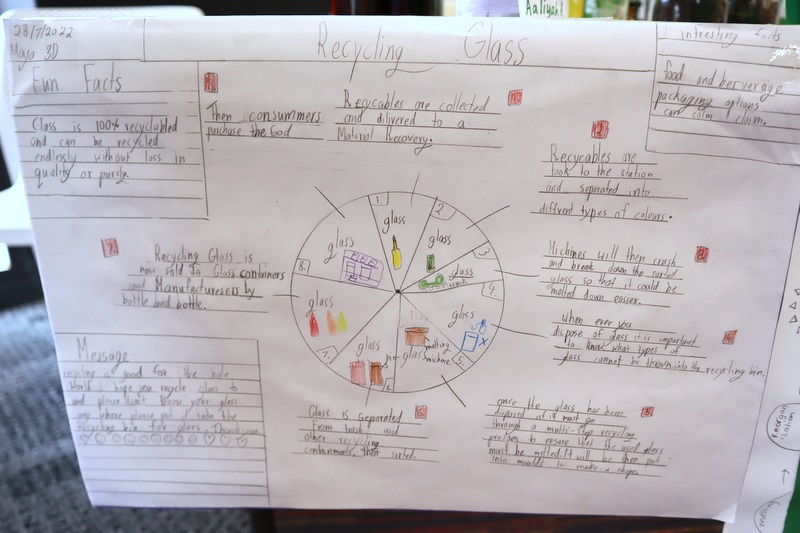 28/7/2022
Maja 3D
Recycling Glass
Aaliyah!
Fun Facts
Glass is 100% recyclabled
and can be recycled
endlessly without loss in
quality or purity.
Then consummers
purchase the food
Recycables are collected
and dilivered to a
Material Recovery.
Infresting facts
food and berverage
packaging options
can calm claim.
Recycables are
took to the station
and separated into
diffrent types of colours.
Machines will then crush
and break down the sorted
glass so that it could be
melted down easier.
when ever you
dispose of glass it is important
to know what types of
glass cannot be thrown into the recycling bin.
once the glass has been
disposed of it must go
through a multi-step recycling
to ensure that the used glass
must be melted. It will be then put
into moulds to make a shape.
Glass is separated
from trash and
other recycling
then sorted.
7.
Recycling Glass is
now sold to Glass containers
and Manufacturesers by
bottle and bottle.
1.
glass
2.
glass
3.
glass
truck
4.
glass
5.
melting
machine
glass
6.
glass
7.
glass
8.
glass
Message
recycling is good for the hole
World i hope you recycle glass to
and please don't throw your glass
any where please put it into the
recycling bin for glass. Thank you